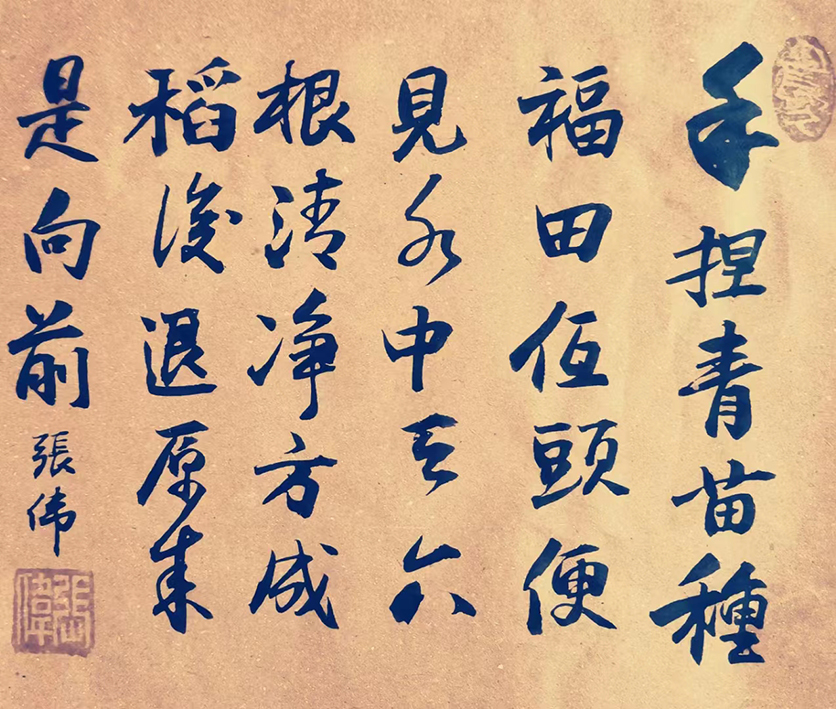 手捏青苗種
福田低頭便
見水中天六
根清净方成
稻後退原来
是向前
張伟
張偉